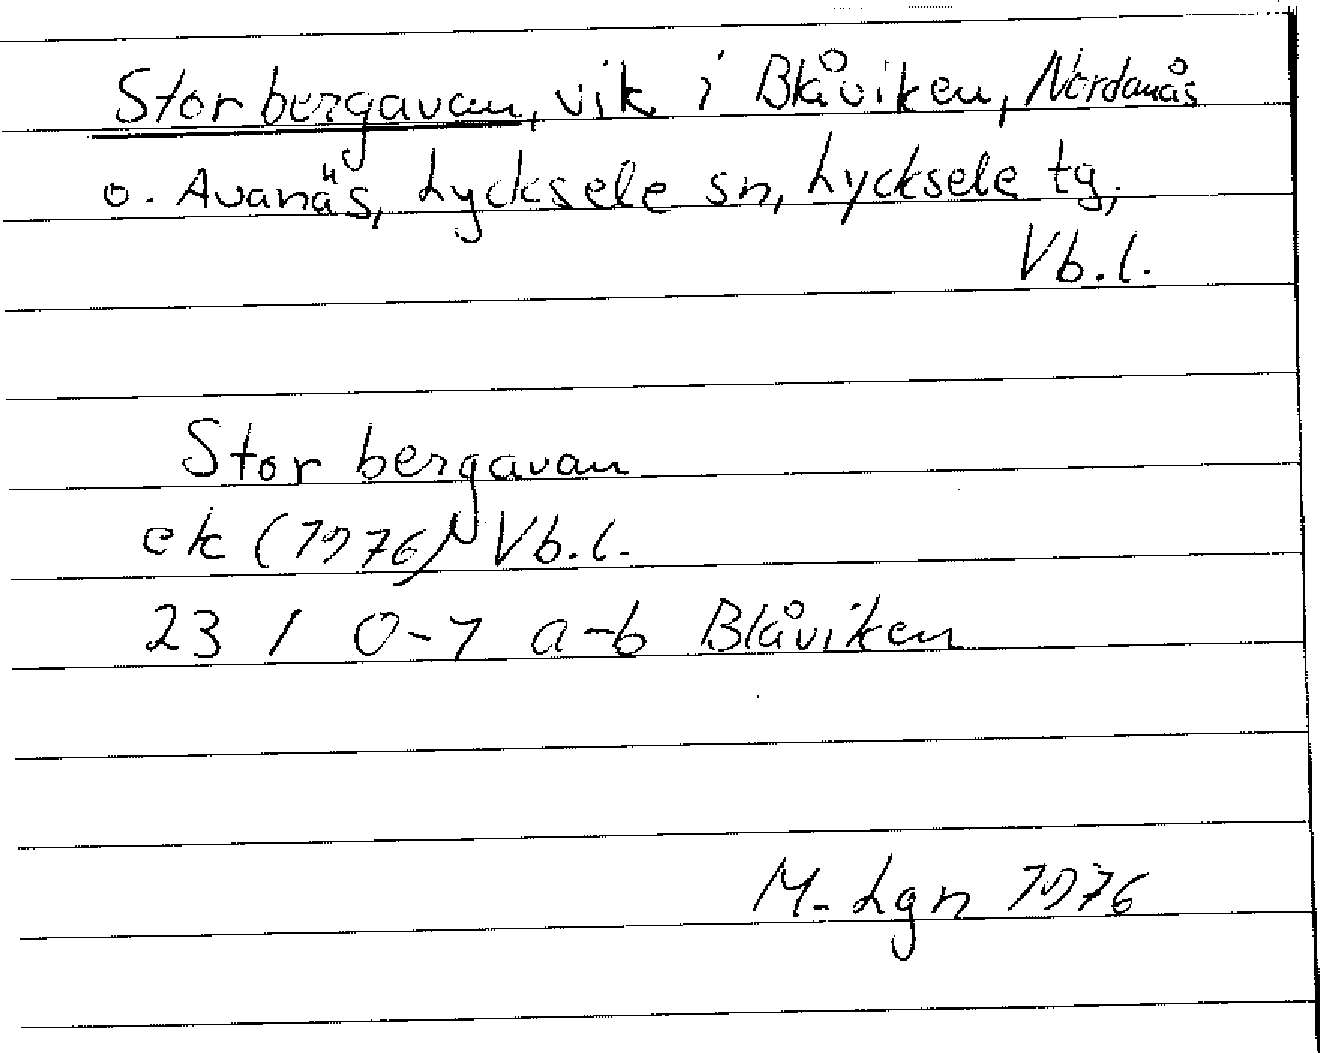 Storbergavan, vik i Blåviken, Nordanås
o. Avanäs, Lycksele sn, Lycksele tg,
Vb.l.
Storbergavan
ek (1976) Vb.l.
23 I 0-1 a-b Blåviken
M. Lgn 1976